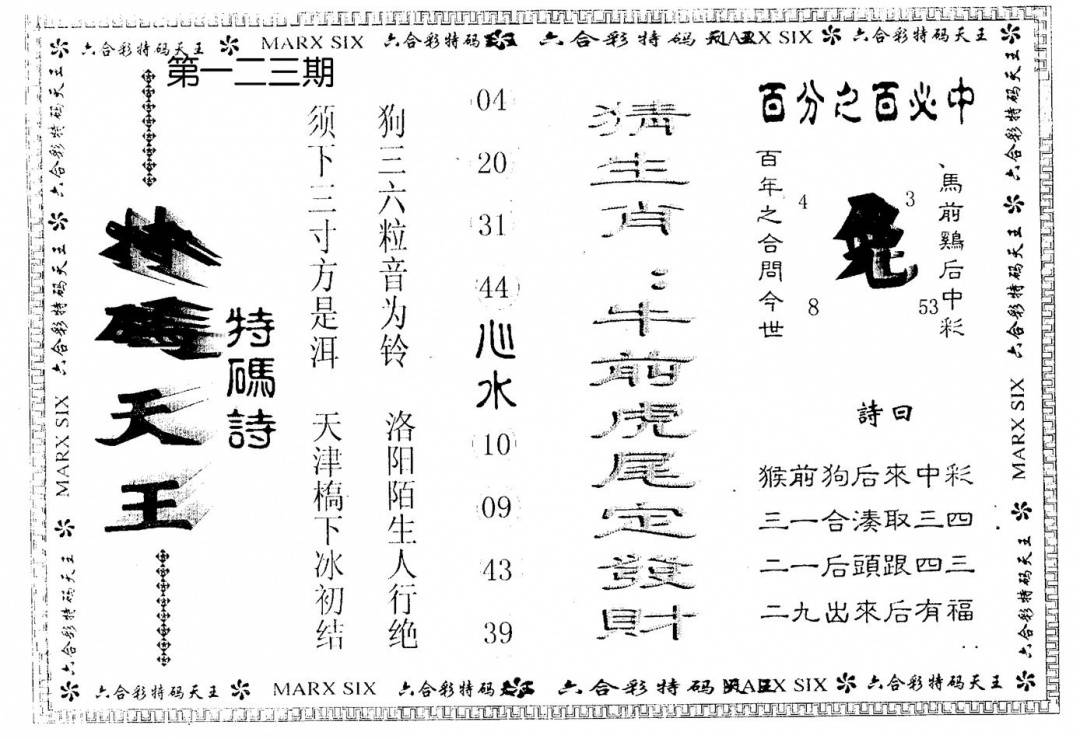 六合彩特码天王 MARX SIX 六合彩特码天王 六合彩特码天王 MARX SIX 六合彩特码天王
第一二三期
特碼天王
特碼詩
须下三寸方是洱 天津槁下冰初结
狗三六粒音为铃 洛阳陌生人行绝
04
20
31
44
心水
10
09
43
39
猜生肖：牛前虎尾定發財
百分之百必中
百年之合問今世
4
8
兔
3
53
馬前鷄后中彩
詩曰
猴前狗后來中彩
三一合湊取三四
二一后頭跟四三
二九出來后有福
六合彩特码天王
六合彩特码天王
MARX SIX
六合彩特码天王
六合彩特码天王
六合彩特码天王
MARX SIX
六合彩特码天王
六合彩特码天王 MARX SIX 六合彩特码天王 六合彩特码天王 MARX SIX 六合彩特码天王